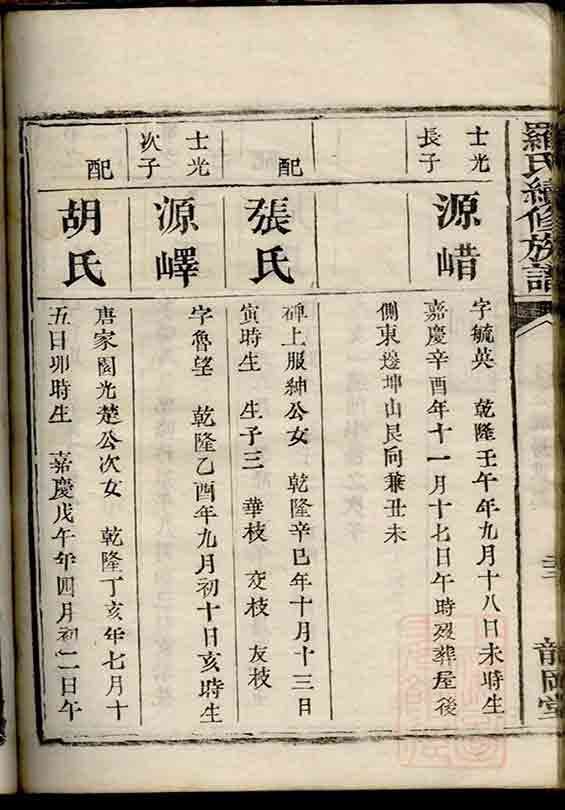 羅氏續修族譜
龍岡堂
士光
長子
源㟙
字毓英　乾隆壬午年九月十八日未時生
嘉慶辛酉年十一月十七日午時歿葬屋後
側東邊坤山艮向兼丑未
配
張氏
碑上服紳公女　乾隆辛巳年十月十三日
寅時生　生子三　華枝　交枝　友枝
士光
次子
源嶧
字魯望　乾隆乙酉年九月初十日亥時生
配
胡氏
唐家園光楚公次女　乾隆丁亥年七月十
五日卯時生　嘉慶戊午年四月初二日午